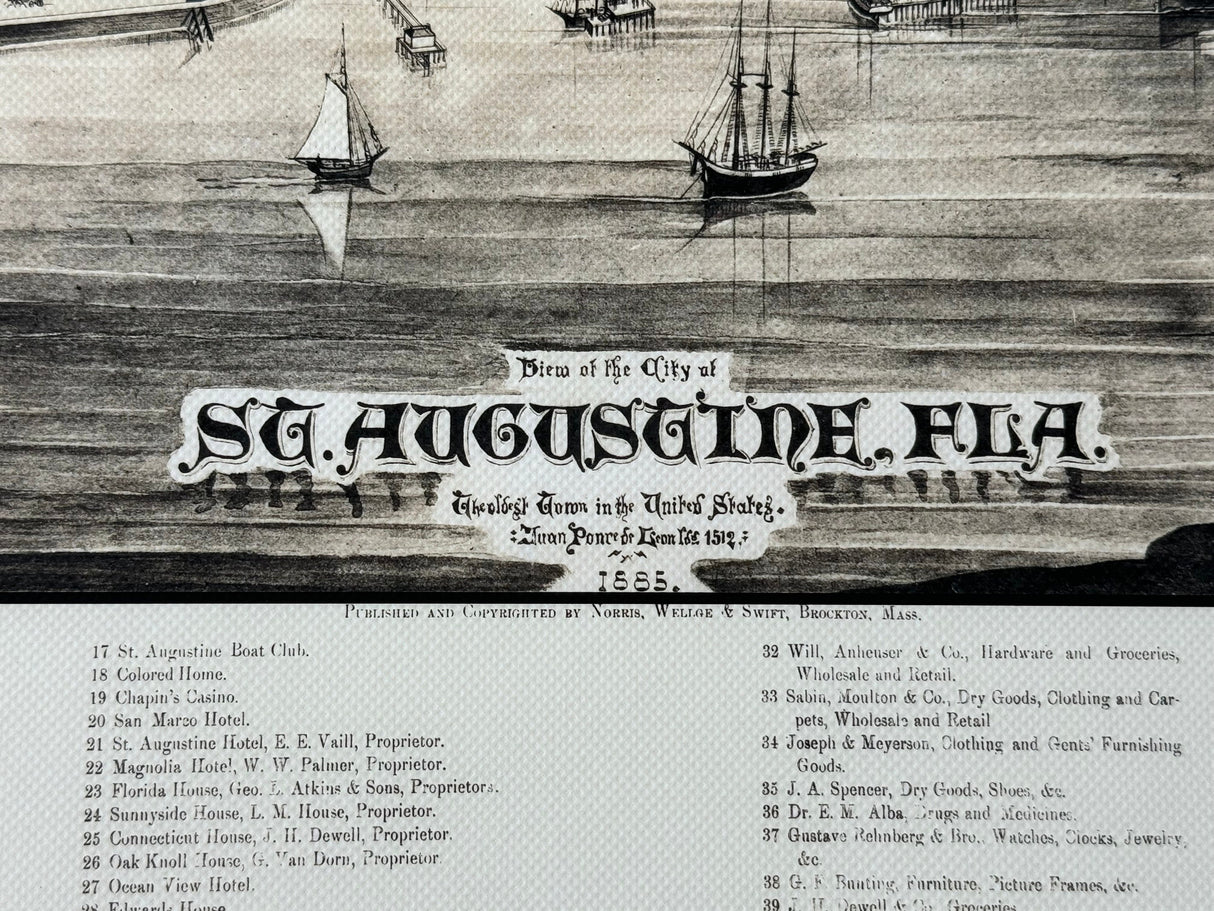 View of the City of
ST. AUGUSTINE, FLA.
The oldest Town in the United States.
Juan Ponce de Leon 1512.
1885.
PUBLISHED AND COPYRIGHTED BY NORRIS, WELLGE & SWIFT, BROCKTON, MASS.
17 St. Augustine Boat Club.
18 Colored Home.
19 Chapin's Casino.
20 San Marco Hotel.
21 St. Augustine Hotel, E. E. Vaill, Proprietor.
22 Magnolia Hotel, W. W. Palmer, Proprietor.
23 Florida House, Geo. L. Atkins & Sons, Proprietors.
24 Sunnyside House, L. M. House, Proprietor.
25 Connecticut House, J. H. Dewell, Proprietor.
26 Oak Knoll House, G. Van Dorn, Proprietor.
27 Ocean View Hotel.
28 Edwards House
32 Will, Anheuser & Co., Hardware and Groceries,
Wholesale and Retail.
33 Sabin, Moulton & Co., Dry Goods, Clothing and Car-
pets, Wholesale and Retail
34 Joseph & Meyerson, Clothing and Gents' Furnishing
Goods.
35 J. A. Spencer, Dry Goods, Shoes, &c.
36 Dr. E. M. Alba, Drugs and Medicines.
37 Gustave Rehnberg & Bro., Watches, Clocks, Jewelry,
&c.
38 G. F. Bunting, Furniture, Picture Frames, &c.
39 J. H. Dewell & Co., Groceries